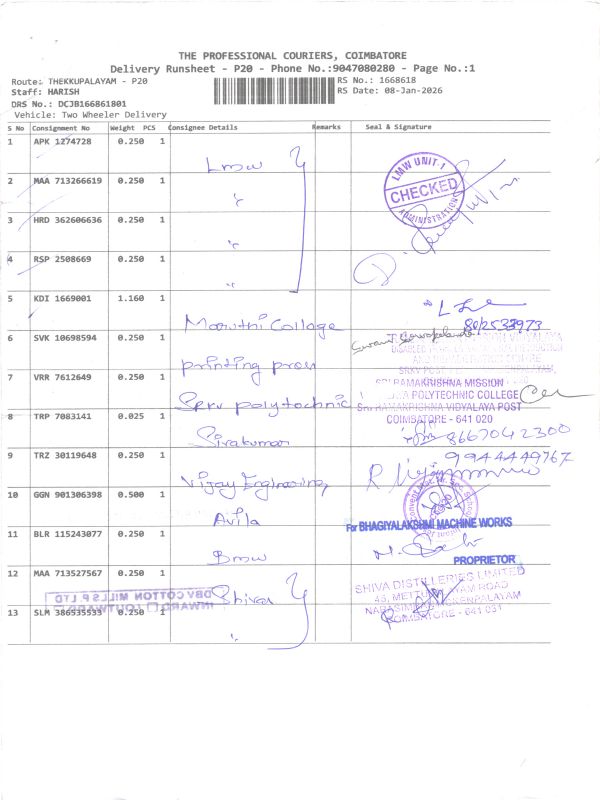 THE PROFESSIONAL COURIERS, COIMBATORE
Delivery Runsheet - P20 - Phone No.:9047080280 - Page No.:1
Route: THEKKUPALAYAM - P20
RS No.: 1668618
Staff: HARISH
RS Date: 08-Jan-2026
DRS No.: DCJB166861801
Vehicle: Two Wheeler Delivery
S No Consignment No Weight PCS Consignee Details Remarks Seal & Signature
1 APK 1274728 0.250 1 Lmw
2 MAA 713266619 0.250 1 "
LMW UNIT-1
CHECKED
ADMINISTRATION
3 HRD 362606636 0.250 1 "
4 RSP 2508669 0.250 1 "
5 KDI 1669001 1.160 1 Maruthi Collage
6 SVK 10698594 0.250 1 printing press
7 VRR 7612649 0.250 1 Srkv polytechnic
SRI RAMAKRISHNA MISSION
POLYTECHNIC COLLEGE
SRI RAMAKRISHNA VIDYALAYA POST
COIMBATORE - 641 020
8 TRP 7083141 0.025 1 Sivakumar
8667042300
9 TRZ 30119648 0.250 1 Vijay Engineering
9944449767
10 GGN 901306398 0.500 1 Avila
11 BLR 115243077 0.250 1 Bmw
For BHAGIYALAKSHMI MACHINE WORKS
PROPRIETOR
12 MAA 713527567 0.250 1 Shiva
DEV COTTON MILLS P LTD
INWARD OUTWARD
13 SLM 386535533 0.250 1 "
SHIVA DISTILLERIES LIMITED
COIMBATORE - 641 031